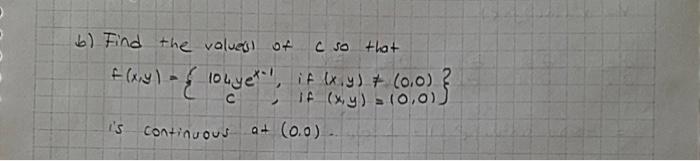 b) Find the value(s) of c so that
f(x,y) = { 104ye^(x-1), if (x,y) ≠ (0,0) }
c , if (x,y) = (0,0)
is continuous at (0.0).